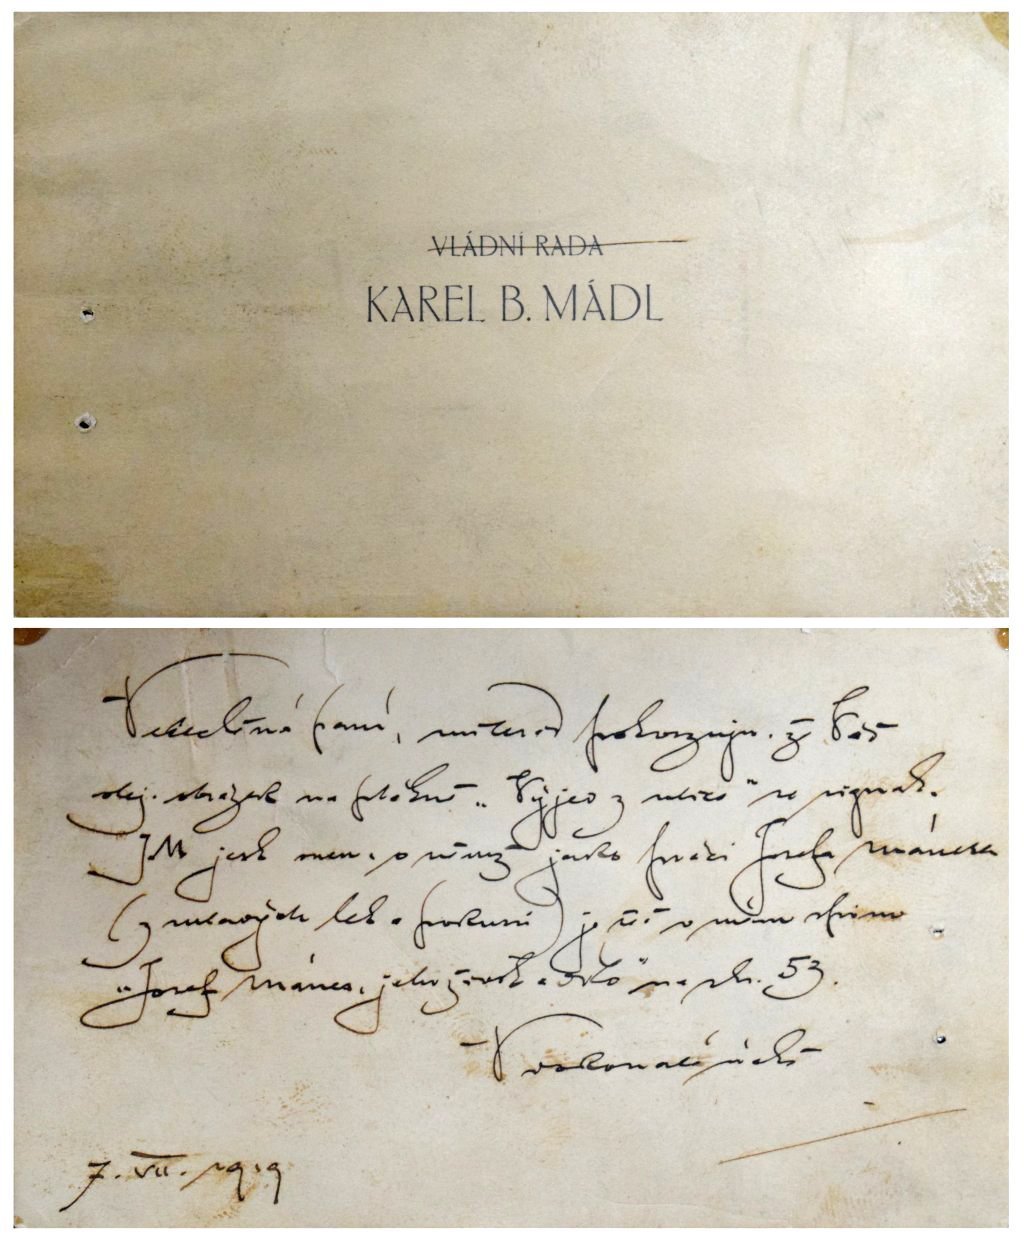 VLÁDNÍ RADA
KAREL B. MÁDL
Velectěná paní, milerád potvrzuju, že Váš
olej. obrázek na plátně „Výjev z ulice" se signat.
JM jest men. o němž jako práci Josefa Mánesa
(z mladých let a
"Josef Mánes, jeho život a dílo" na str. 53.
V dokonalé úctě
7. VII. 1919